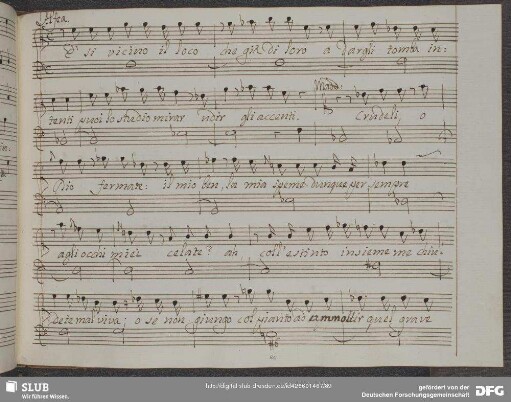 Altea.
E' si vicino il loco che già di loro a dargli tomba in:
tenti puoi lo studio mirar udir gli accenti. Crudeli, o
Dio fermate: il mio ben, la mia speme dunque per sempre
agli occhi miei celate? ah coll' estinto insieme me chiu-
dete mal viva; o se non giungo col pianto ad ammollir quel grave
SLUB
Wir führen Wissen.
gefördert von der
Deutschen Forschungsgemeinschaft
DFG